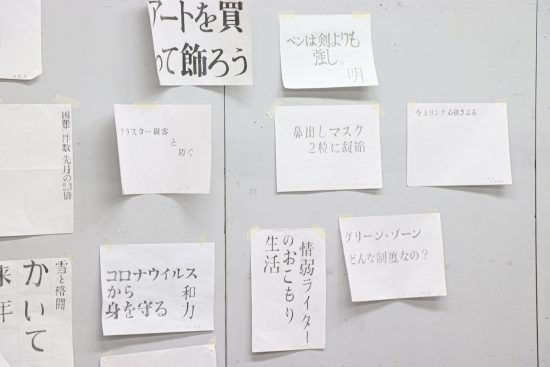 アートを買
って飾ろう
ペンは剣よりも
強し。
明
困難 件数 先月の23倍
クラスター観客
と
防ぐ
鼻出しマスク
2粒に凝縮
今、とリンク、心揺さぶる
雪と格闘
かいて
来年
コロナウイルス
から 和
身を守る 力
情弱ライター
のおこもり
生活
グリーン・ゾーン
どんな制度なの？